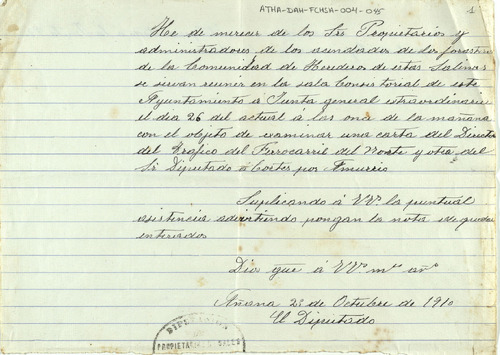 ATHA-DAH-FCHSA-004-045
1
He de merecer de los Srs Propietarios y
administradores de los hacendados de los forasteros
de la Comunidad de Herederos de estas Salinas
se sirvan reunir en la sala Consistorial de este
Ayuntamiento a Junta general extraordinaria
el dia 26 del actual á las once de la mañana
con el objeto de examinar una carta del Director
del Trafico del Ferrocarril del Norte y otra del
Sr Diputado á Cortes por Amurrio
Suplicando á VV. la puntual
asistencia advirtiendo pongan la nota de quedar
enterados
Dios gue á VV. ms. añs.
Añana 23 de Octubre de 1910
El Diputado
DIPUTACION
PROPIETARIOS SALES